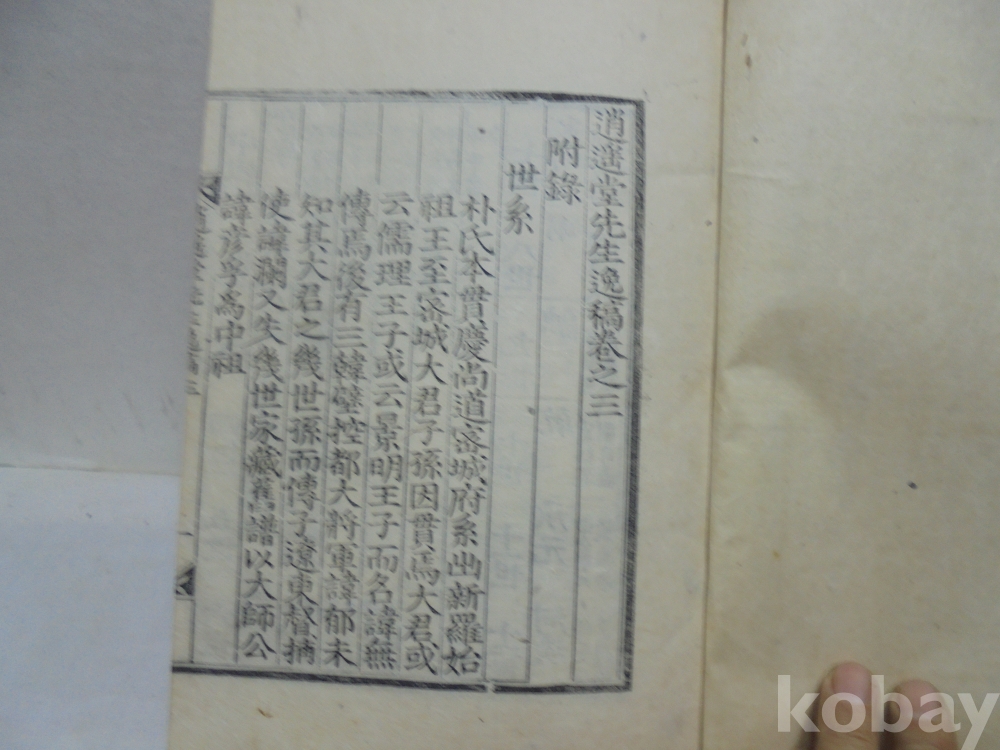 逍遥堂先生逸稿卷之三
附錄
世系
朴氏本貫慶尚道密城府系出新羅始
祖王至密城大君子孫因貫焉大君或
云儒理王子或云景明王子而名諱無
傳焉後有三韓壁控都大將軍諱郁未
知其大君之幾世孫而傳子遼東督捕
使諱瀾又失幾世家藏舊譜以大師公
諱彦孚爲中祖
kobay